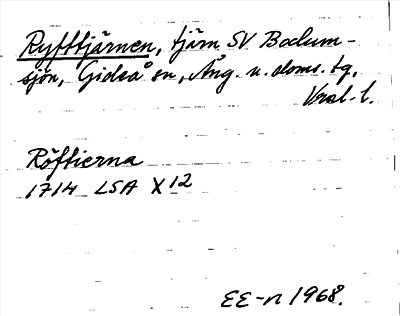 Ryfttjärnen, tjärn SV Bodum-
sjön, Gideå sn, Ång. n. doms. tg,
l.
Röftierna
1714 LSA X12
EE-n 1968.